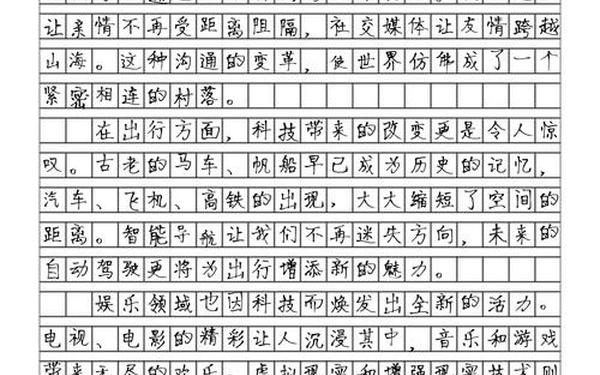 让亲情不再受距离阻隔，社交媒体让友情跨越
山海。这种沟通的变革，使世界仿佛成了一个
紧密相连的村落。
在出行方面，科技带来的改变更是令人惊
叹。古老的马车、帆船早已成为历史的记忆，
汽车、飞机、高铁的出现，大大缩短了空间的
距离。智能导航让我们不再迷失方向，未来的
自动驾驶更将为出行增添新的魅力。
娱乐领域也因科技而焕发出全新的活力。
电视、电影的精彩让人沉浸其中，音乐和游戏
带来无尽的欢乐。虚拟现实和增强现实技术则